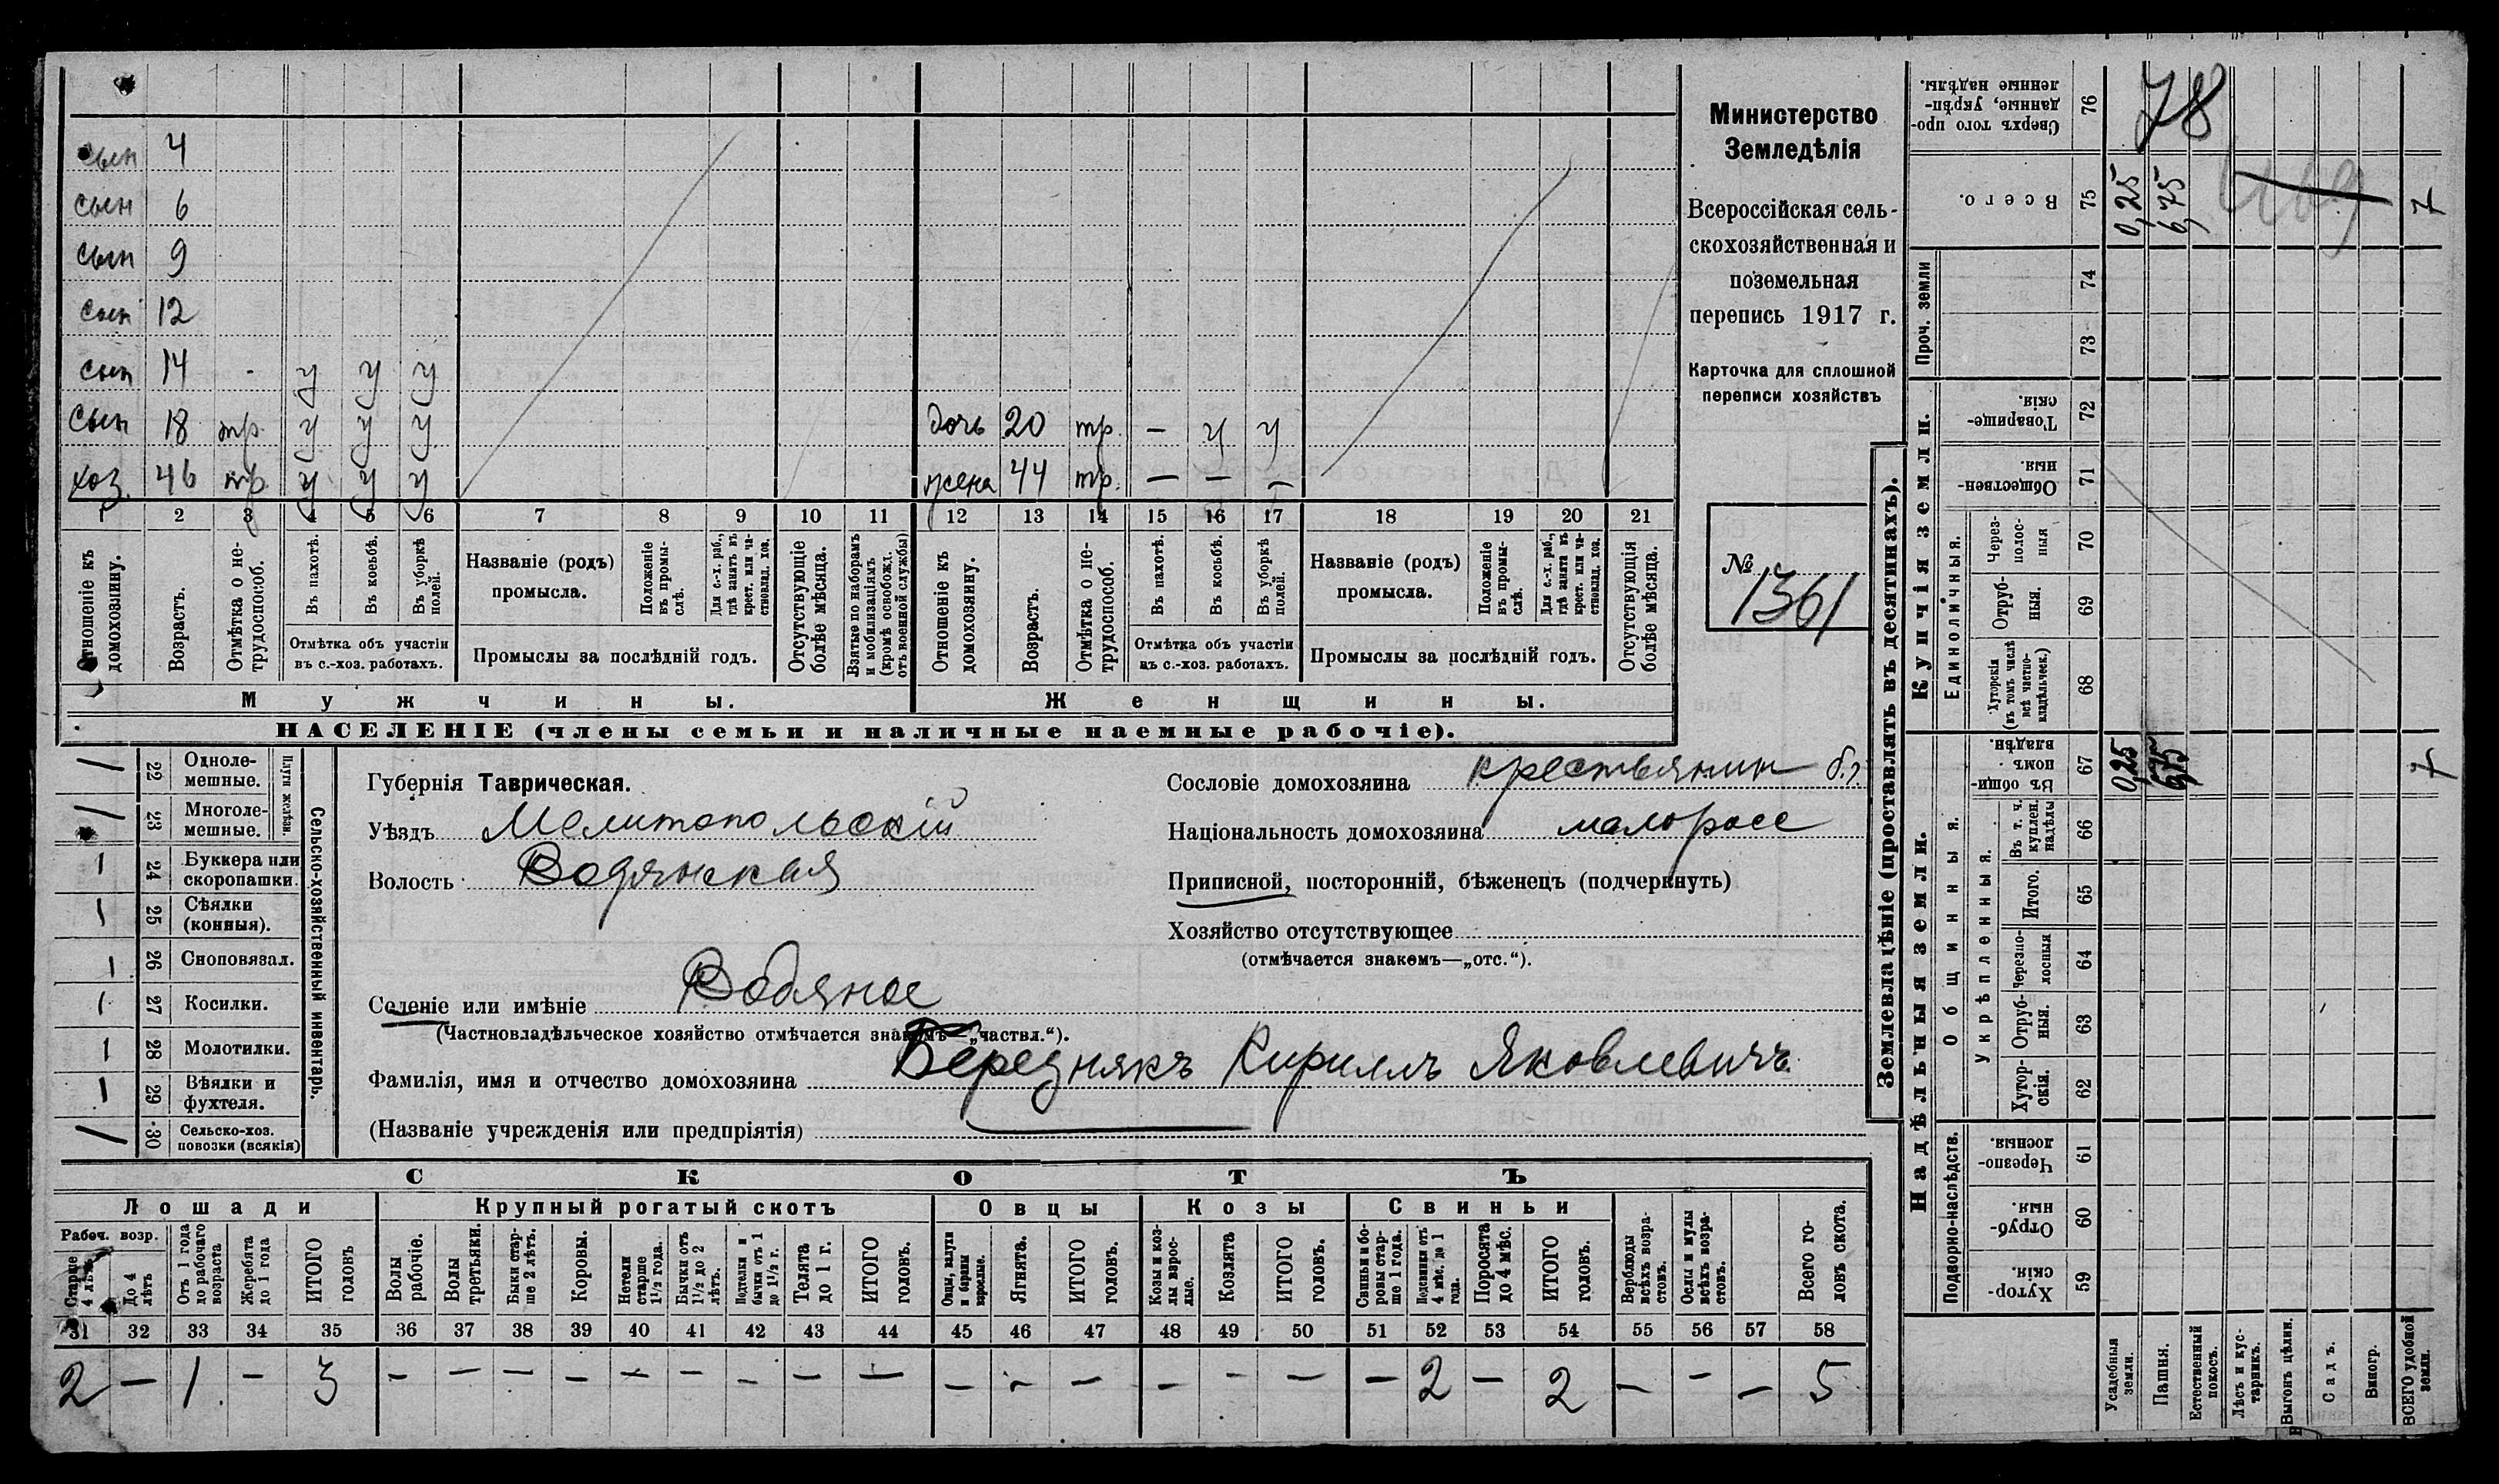 сын 4
сын 6
сын 9
сын 12
сын 14 - у у у
сын 18 тр. у у у дочь 20 тр. — у у
хоз. 46 тр. у у у жена 44 тр. — — —
1 2 3 4 5 6 7 8 9 10 11 12 13 14 15 16 17 18 19 20 21
Отношеніе къ домохозяину.
Возрастъ.
Отмѣтка о не-трудоспособ.
Въ пахотѣ.
Въ косьбѣ.
Въ уборкѣ полей.
Отмѣтка объ участіи
въ с.-хоз. работахъ.
Названіе (родъ)
промысла.
Положеніе въ промы-слѣ.
Для с.-х. раб., гдѣ занятъ въ крест. или ча-стновлад. хоз.
Промыслы за послѣдній годъ.
Отсутствующіе болѣе мѣсяца.
Взятые по наборамъ и мобилизаціямъ (кромѣ освобожд. отъ военной службы)
Отношеніе къ домохозяину.
Возрастъ.
Отмѣтка о не-трудоспособ.
Въ пахотѣ.
Въ косьбѣ.
Въ уборкѣ полей.
Отмѣтка объ участіи
въ с.-хоз. работахъ.
Названіе (родъ)
промысла.
Положеніе въ промы-слѣ.
Для с.-х. раб., гдѣ занята въ крест. или ча-стновлад. хоз.
Промыслы за послѣдній годъ.
Отсутствующія болѣе мѣсяца.
Мужчины. Женщины.
НАСЕЛЕНІЕ (члены семьи и наличные наемные рабочіе).
Министерство
Земледѣлія
Всероссійская сель-
скохозяйственная и
поземельная
перепись 1917 г.
Карточка для сплошной
переписи хозяйствъ
№ 1361
Сельско-хозяйственный инвентарь.
Плуги желѣзн.
/ 22 Одноле-мешные.
/ 23 Многоле-мешные.
1 24 Буккера или скоропашки.
1 25 Сѣялки (конныя).
1 26 Сноповязал.
1 27 Косилки.
1 28 Молотилки.
1 29 Вѣялки и фухтеля.
/ 30 Сельско-хоз. повозки (всякія)
Губернія Таврическая.
Уѣздъ Мелитопольскій
Волость Водянская
Селеніе или имѣніе Водяное
(Частновладѣльческое хозяйство отмѣчается знакомъ—„частвл.“).
Фамилія, имя и отчество домохозяина Березнякъ Кириллъ Яковлевичъ
(Названіе учрежденія или предпріятія)
Сословіе домохозяина крестьянин
Національность домохозяина малоросс
Приписной, посторонній, бѣженецъ (подчеркнуть)
Хозяйство отсутствующее
(отмѣчается знакомъ—„отс.“).
СКОТЪ
Лошади Крупный рогатый скотъ Овцы Козы Свиньи
Рабоч. возр.
Старше 4 лѣтъ
До 4 лѣтъ
Отъ 1 года до рабочаго возраста
Жеребята до 1 года
ИТОГО головъ
Волы рабочіе.
Волы третьяки.
Быки стар-ше 2 лѣтъ.
Коровы.
Нетели старше 1½ года.
Бычки отъ 1½ до 2 лѣтъ.
Подтелки и бычки отъ 1 до 1½ г.
Телята до 1 г.
ИТОГО головъ.
Овцы, валухи и бараны взрослые.
Ягнята.
ИТОГО головъ.
Козы и коз-лы взрос-лые.
Козлята
ИТОГО головъ.
Свиньи и бо-ровы стар-ше 1 года.
Подсвинки отъ 4 мѣс. до 1 года.
Поросята до 4 мѣс.
ИТОГО головъ.
Верблюды всѣхъ возра-стовъ.
Ослы и мулы всѣхъ возра-стовъ.
Всего го-ловъ скота.
31 32 33 34 35 36 37 38 39 40 41 42 43 44 45 46 47 48 49 50 51 52 53 54 55 56 57 58
2 — 1 — 3 — — — — — — — — — — — — — — — — 2 — 2 — — — 5
Землевладѣніе (проставлять въ десятинахъ).
Надѣльныя земли. Купчія земли. Проч. земли
Подворно-наслѣдств. Общинныя. Укрѣпленныя. Единоличныя.
59 Хутор-скія.
60 Отруб-ныя.
61 Черезпо-лосныя.
62 Хутор-скія.
63 Отруб-ныя.
64 Черезпо-лосныя
65 Итого.
66 Въ т. ч. куплен. надѣлы
67 Въ общи-номъ владѣн.
68 Хуторскія (въ томъ числѣ всѣ частно-владѣльческ.)
69 Отруб-ныя.
70 Через-полос-ныя
71 Обществен-ныя.
72 Товарище-скія.
73
74
75 Всего.
76 Сверхъ того про-данные, укрѣп-ленные надѣлы.
Усадебныя земли. 0,25 0,25
Пашня. 6,75 6,75
Естественный покосъ.
Лѣсъ и кус-тарникъ.
Выгонъ цѣлин.
Садъ.
Виногр.
ВСЕГО удобной земли. 7 7
78